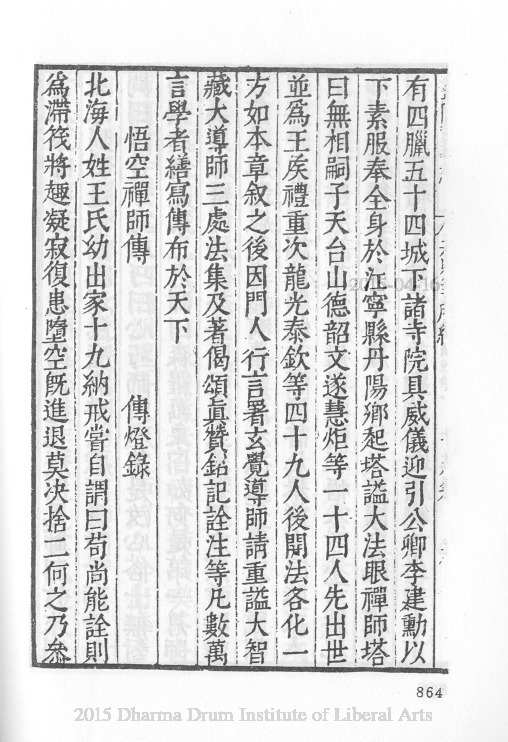 有四臘五十四城下諸寺院具威儀迎引公卿李建勳以
下素服奉全身於江寧縣丹陽鄉起塔謚大法眼禪師塔
曰無相嗣子天台山德韶文遂慧炬等一十四人先出世
並爲王矦禮重次龍光泰欽等四十九人後開法各化一
方如本章叙之後因門人行言署玄覺導師請重謚大智
藏大導師三處法集及著偈頌眞贊銘記詮注等凡數萬
言學者繕寫傳布於天下
悟空禪師傳 傳燈錄
北海人姓王氏幼出家十九納戒嘗自謂曰苟尚能詮則
爲滯筏將趣凝寂復患墮空旣進退莫决捨二何之乃叅
2015-04-16
864
2015 Dharma Drum Institute of Liberal Arts